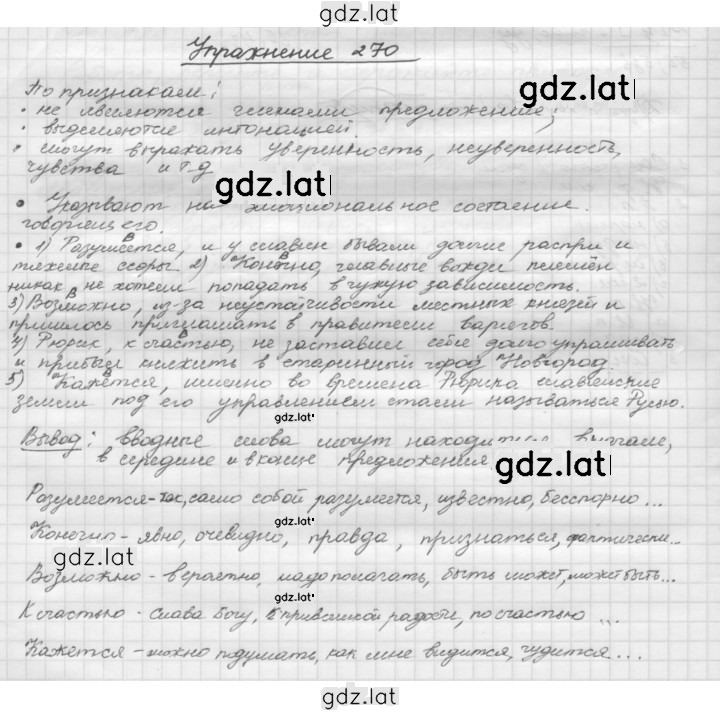 gdz.lat
Упражнение 270
По признакам:
gdz.lat
· не являются членами предложение;
· выделяются интонацией.
· могут выражать уверенность, неуверенность,
чувства и т.д
gdz.lat
• Указывают на эмоциональное состаение.
говорящего.
• 1) Разумеется, и у славян бывали долгие распри и
тяжелые ссоры. 2) Конечно, главные вожди племён
никак не хотели попадать в чужую зависимость.
3) Возможно, из-за неустойчивости местных князей и
пришлось приглашать в правители варягов.
4) Рюрик, к счастью, не заставил себе долго упрашивать
и прибыл княжить в старинный город Новгород.
5) Кажется, именно во времена Рюрика славянские
земли под его управлением стали называться Русью.
gdz.lat
Вывод: вводные слова могут находиться вначале,
в середине и в конце предложения
gdz.lat
Разумеется - так, само собой разумеется, известно, бесспорно...
gdz.lat
Конечно - явно, очевидно, правда, признаться, фактически...
gdz.lat
Возможно - вероятно, надо полагать, быть может, может быть...
gdz.lat
К счастью - слава Богу, к превеликой радости, по счастью ...
Кажется - можно подумать, как мне видится, чудится...
gdz.lat